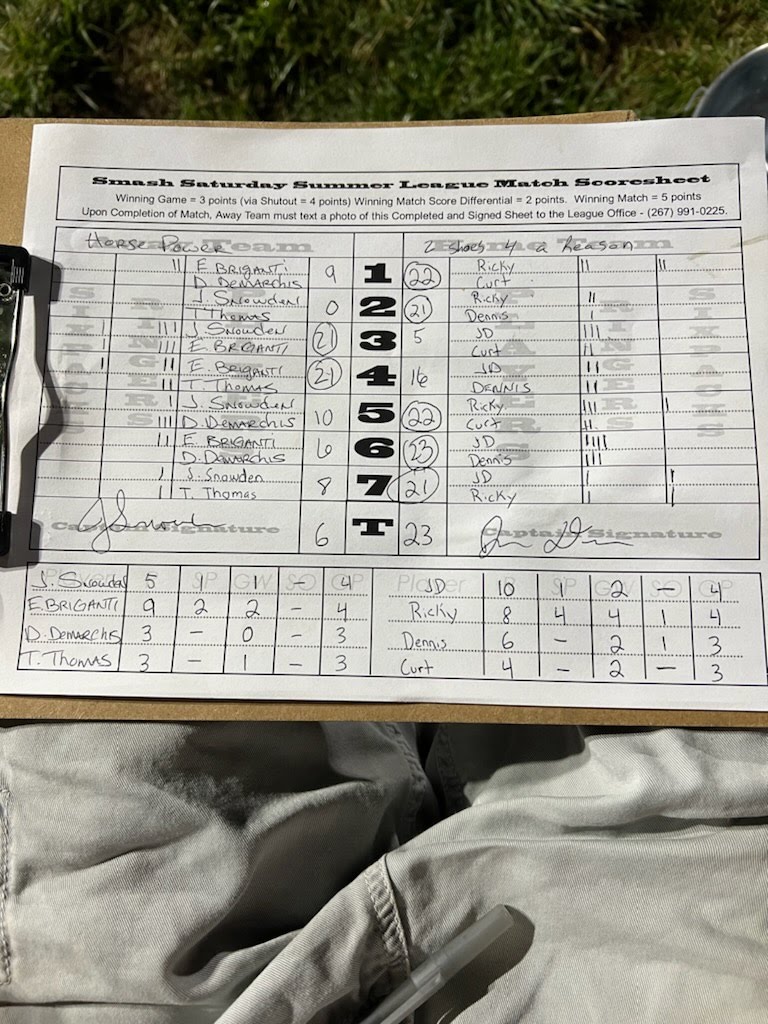 Smash Saturday Summer League Match Scoresheet
Winning Game = 3 points (via Shutout = 4 points) Winning Match Score Differential = 2 points. Winning Match = 5 points
Upon Completion of Match, Away Team must text a photo of this Completed and Signed Sheet to the League Office - (267) 991-0225.
Horse Power 2 shoes 4 a Reason
|| E BRIGANTI 9 1 22 Ricky || ||
D. DeMARCHIS Curt
J. SNOWDEN 0 2 21 Ricky ||
T Thomas Dennis |
| ||| J. SNOWDEN 21 3 5 JD |||
E. BRIGANTI Curt ||
| || E. Briganti 21 4 16 JD ||
|| T. Thomas DENNIS ||
| J. SNOWDEN 10 5 22 Ricky ||| |
||| D. DEMARCHIS Curt ||
|| E. BRIGANTI 6 6 23 JD ||||
D. DeMARCHIS Dennis |||
| J. Snowden 8 7 21 JD | |
| T. Thomas Ricky | |
Captain Signature 6 T 23 Captain Signature
J. Snowden 5 SP 1 - 4 Player JD 10 1 2 - 4
E. BRIGANTI 9 2 2 - 4 Ricky 8 4 4 1 4
D. DeMARCHIS 3 - 0 - 3 Dennis 6 - 2 1 3
T. THOMAS 3 - 1 - 3 Curt 4 - 2 - 3